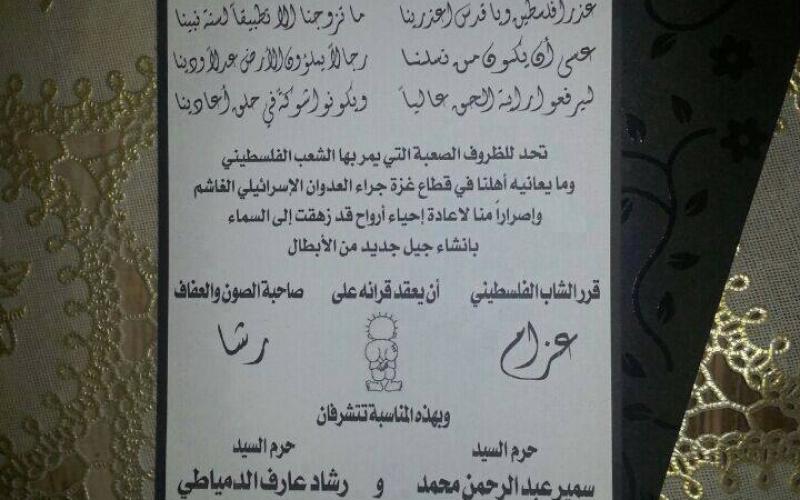 عذراً فلسطين ويا قدس اعذرينا ما تزوجنا الا تطبيقاً لسنة نبينا
عسى أن يكون من نسلنا رجالاً يملؤون الأرض عدلاً ودينا
ليرفعوا راية الحق عالياً ويكونوا شوكةً في حلق أعادينا
تحد للظروف الصعبة التي يمر بها الشعب الفلسطيني
وما يعانيه أهلنا في قطاع غزة جراء العدوان الإسرائيلي الغاشم
وإصراراً منا لاعادة إحياء أرواح قد زهقت إلى السماء
بإنشاء جيل جديد من الأبطال
قرر الشاب الفلسطيني أن يعقد قرانه على صاحبة الصون والعفاف
عزام رشا
وبهذه المناسبة تتشرفان
حرم السيد حرم السيد
سمير عبد الرحمن محمد و رشاد عارف الدمياطي